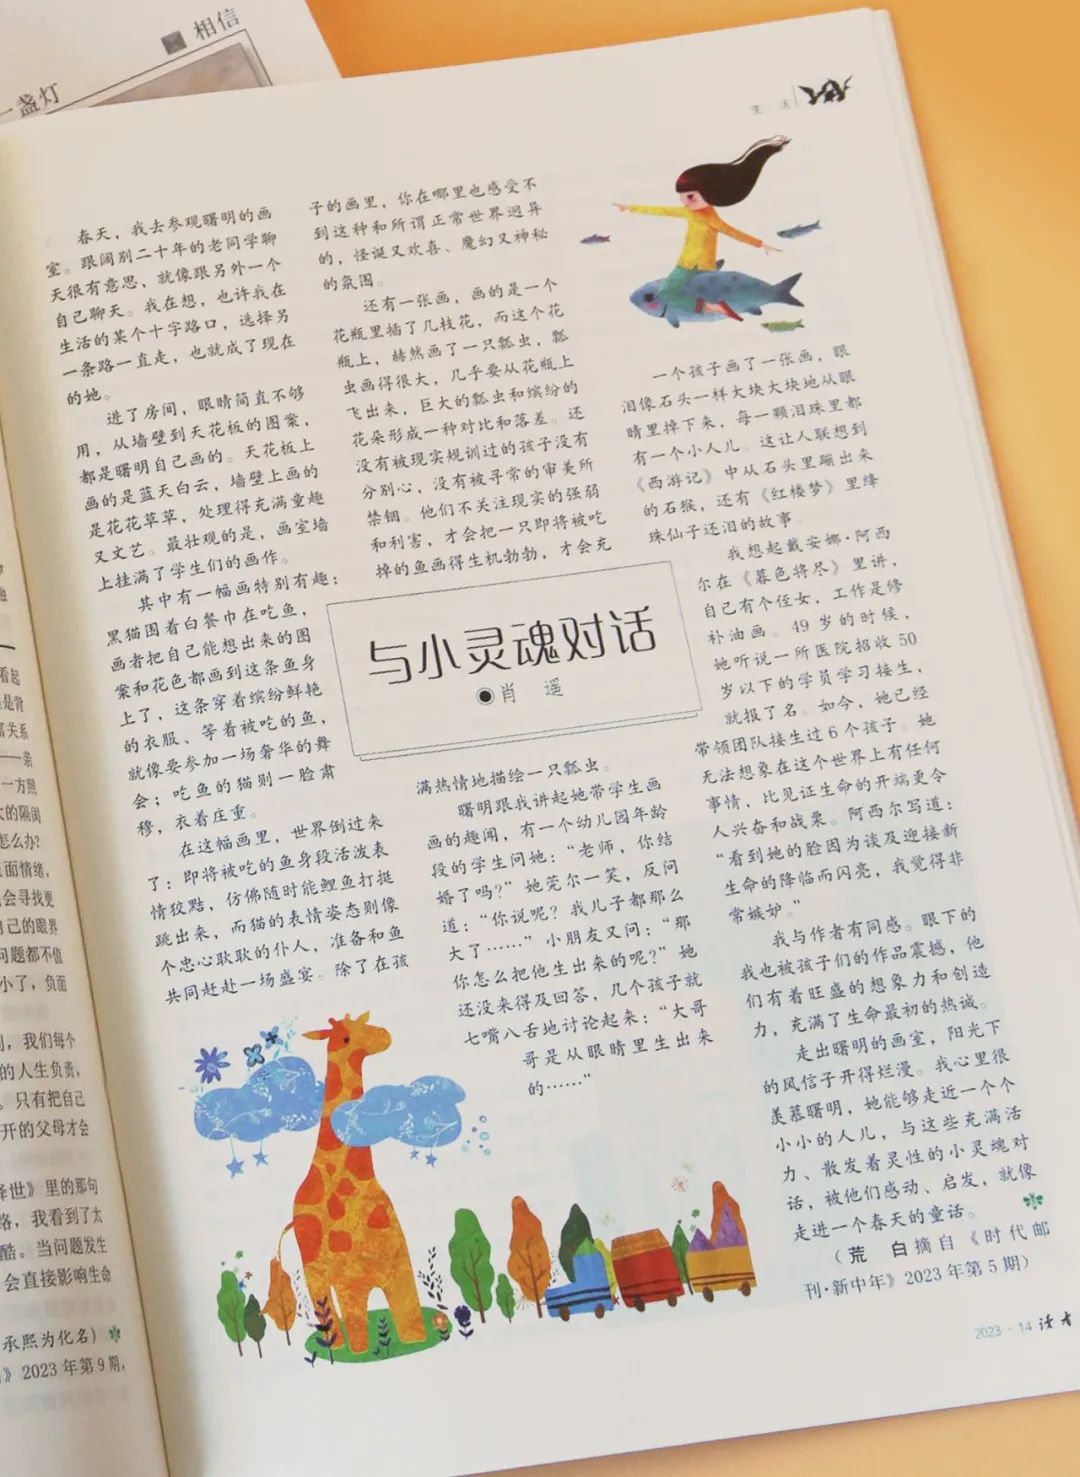 ■ 相信
一盏灯
生 活
与小灵魂对话
◉肖 遥
春天，我去参观曙明的画
室。跟阔别二十年的老同学聊
天很有意思，就像跟另外一个
自己聊天。我在想，也许我在
生活的某个十字路口，选择另
一条路一直走，也就成了现在
的她。
进了房间，眼睛简直不够
用，从墙壁到天花板的图案，
都是曙明自己画的。天花板上
画的是蓝天白云，墙壁上画的
是花花草草，处理得充满童趣
又文艺。最壮观的是，画室墙
上挂满了学生们的画作。
其中有一幅画特别有趣：
黑猫围着白餐巾在吃鱼，
画者把自己能想出来的图
案和花色都画到这条鱼身
上了，这条穿着缤纷鲜艳
的衣服、等着被吃的鱼，
就像要参加一场奢华的舞
会；吃鱼的猫则一脸肃
穆，衣着庄重。
在这幅画里，世界倒过来
了：即将被吃的鱼身段活泼表
情狡黠，仿佛随时能鲤鱼打挺
跳出来，而猫的表情姿态则像
个忠心耿耿的仆人，准备和鱼
共同赶赴一场盛宴。除了在孩
子的画里，你在哪里也感受不
到这种和所谓正常世界迥异
的，怪诞又欢喜、魔幻又神秘
的氛围。
还有一张画，画的是一个
花瓶里插了几枝花，而这个花
瓶上，赫然画了一只瓢虫，瓢
虫画得很大，几乎要从花瓶上
飞出来，巨大的瓢虫和缤纷的
花朵形成一种对比和落差。还
没有被现实规训过的孩子没有
分别心，没有被寻常的审美所
禁锢。他们不关注现实的强弱
和利害，才会把一只即将被吃
掉的鱼画得生机勃勃，才会充
满热情地描绘一只瓢虫。
曙明跟我讲起她带学生画
画的趣闻，有一个幼儿园年龄
段的学生问她：“老师，你结
婚了吗？”她莞尔一笑，反问
道：“你说呢？我儿子都那么
大了……”小朋友又问：“那
你怎么把他生出来的呢？”她
还没来得及回答，几个孩子就
七嘴八舌地讨论起来：“大哥
哥是从眼睛里生出来
的……”
一个孩子画了一张画，眼
泪像石头一样大块大块地从眼
睛里掉下来，每一颗泪珠里都
有一个小人儿。这让人联想到
《西游记》中从石头里蹦出来
的石猴，还有《红楼梦》里绛
珠仙子还泪的故事。
我想起戴安娜·阿西
尔在《暮色将尽》里讲，
自己有个侄女，工作是修
补油画。49 岁的时候，
她听说一所医院招收 50
岁以下的学员学习接生，
就报了名。如今，她已经
带领团队接生过 6 个孩子。她
无法想象在这个世界上有任何
事情，比见证生命的开端更令
人兴奋和战栗。阿西尔写道：
“看到她的脸因为谈及迎接新
生命的降临而闪亮，我觉得非
常嫉妒。”
我与作者有同感。眼下的
我也被孩子们的作品震撼，他
们有着旺盛的想象力和创造
力，充满了生命最初的热诚。
走出曙明的画室，阳光下
的风信子开得烂漫。我心里很
羡慕曙明，她能够走近一个个
小小的人儿，与这些充满活
力、散发着灵性的小灵魂对
话，被他们感动、启发，就像
走进一个春天的童话。
（荒 白摘自《时代邮
刊·新中年》2023 年第 5 期）
2023 · 14 读者
看起
是背
富关系
——亲
一方照
大的隔阂
怎么办？
面情绪，
会寻找更
自己的眼界
问题都不值
小了，负面
，我们每个
的人生负责，
。只有把自己
开的父母才会
择世》里的那句
路，我看到了太
酷。当问题发生
会直接影响生命
承熙为化名）
》2023 年第 9 期，